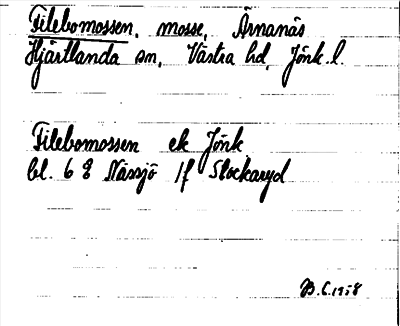 Filebomossen, mosse, Ärnanäs
Hjärtlanda sn, Västra hd, Jönk. l.
Filebomossen ek Jönk
bl. 6 E Nässjö 1f Stockaryd
B.C. 1958